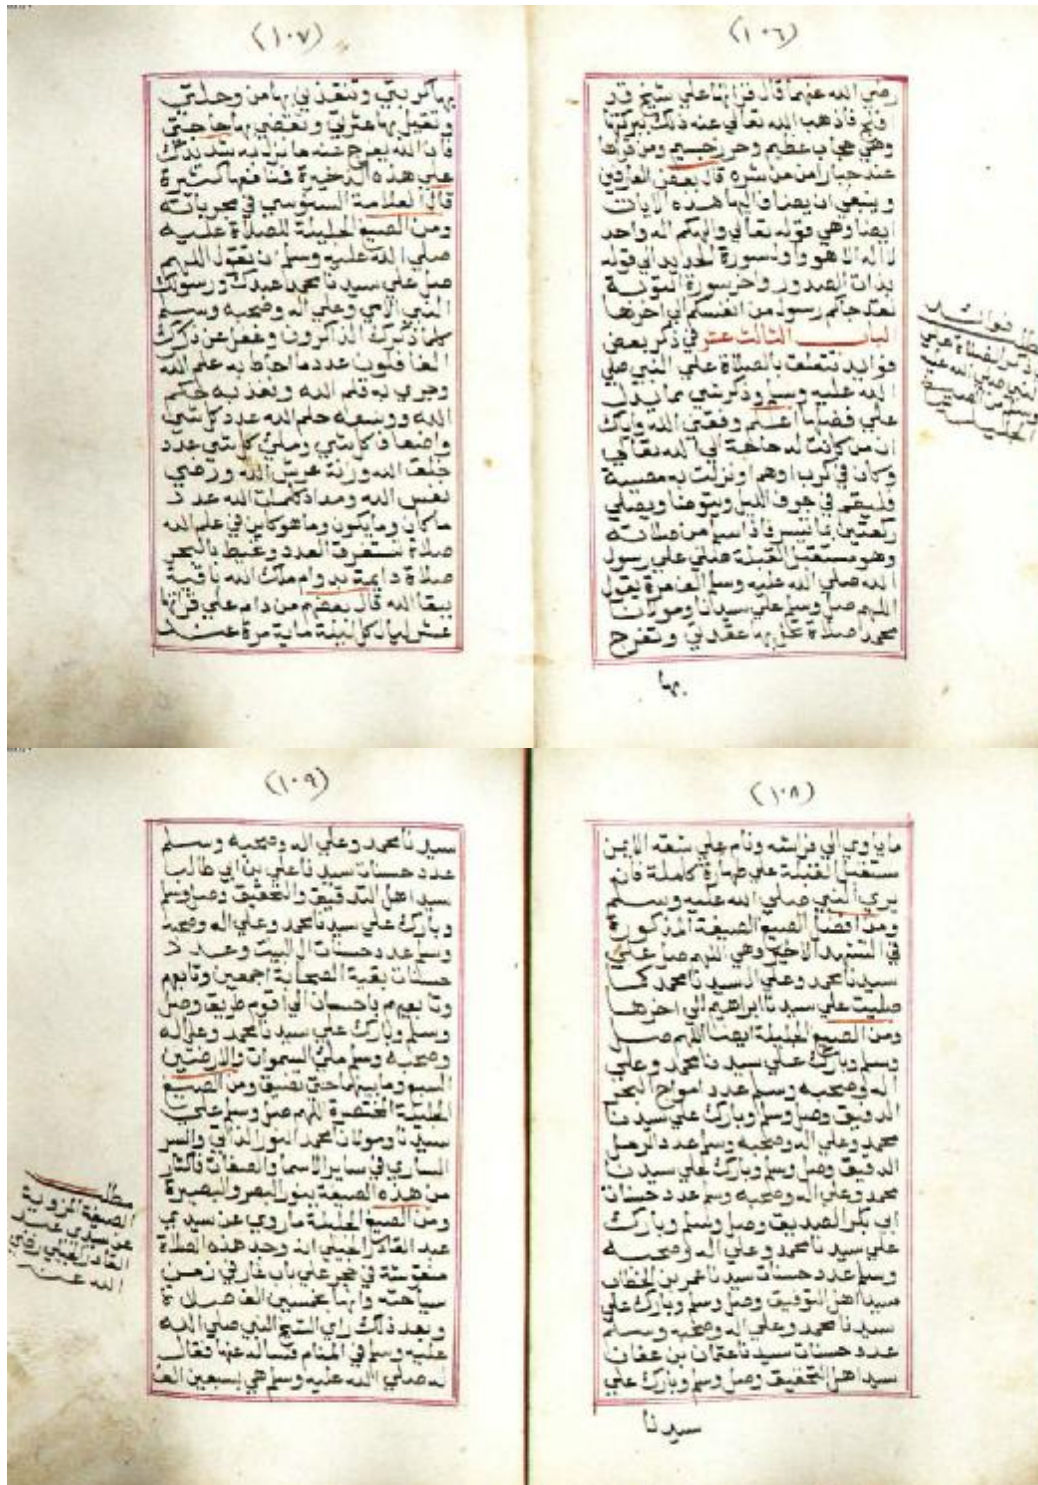 (١٠٦)
رضي الله عنهما قال قراتها علي شيخ قد
فلج فاذهب الله تعالي عنه ذلك ببركتها
وهي حجاب عظيم وحرز جسيم ومن قراها
عند جبار امن من شره قال بعض العارفين
وينبغي ان يضاف اليها هذه الايات
ايضا وهي قوله تعالي والهكم اله واحد
لا اله الا هو واول سورة الحديد الي قوله
بذات الصدور واخر سورة التوبة
لقد جاكم رسول من انفسكم الي اخرها
الباب الثالث عشر في ذكر بعض
فوايد تتعلق بالصلاة علي النبي صلي
الله عليه وسلم وذكر شي مما يدل
علي فضلها اعلم وفقني الله واياك
ان من كانت له حاجة الي الله تعالي
وكان في كرب اوهم او نزلت به مصيبة
فليقم في جوف الليل ويتوضا ويصلي
ركعتين بما تيسر فاذا سلم من صلاته
وهو مستقبل القبلة صلي علي رسول
الله صلي الله عليه وسلم الف مرة يقول
اللهم صل وسلم علي سيدنا ومولانا
محمد صلاة تحل بها عقدتي وتفرج
بها
مطلب فوائد
ذكر الصلاة علي
النبي صلي الله عليه
وسلم من
الجليلة
(١٠٧)
بها كربتي وتنقذني بها من وحلتي
وتقيل بها عثرتي وتقضي بها حاجتي
فان الله يفرج عنه ما نزل به شديدك
علي هذه الذخيرة فنافعها كثيرة
قال العلامة السنوسي في مجرباته
ومن الصيغ الجليلة للصلاة عليه
صلي الله عليه وسلم ان تقول اللهم
صل علي سيدنا محمد عبدك ورسولك
النبي الامي وعلي اله وصحبه وسلم
كلما ذكرك الذاكرون وغفل عن ذكرك
الغافلون عدد ما احاط به علم الله
وجري به قلم الله ونفذ به حكم
الله ووسعه حلم الله عدد كل شي
واضعاف كل شي وملئ كل شي عدد
خلق الله وزنة عرش الله ورضي
نفس الله ومداد كلمات الله عدد
ما كان وما يكون وما هو كاين في علم الله
صلاة تستغرق العدد وتحيط بالبحر
صلاة دايمة بدوام ملك الله باقية
ببقا الله قال بعضهم من دام علي قراتها
عشر ليال كل ليلة ماية مرة عند
(١٠٨)
ما ياوي الي فراشه ونام علي شقه الايمن
مستقبل القبلة علي طهارة كاملة فانه
يري النبي صلي الله عليه وسلم
ومن افضل الصيغ الصيغة المذكورة
في التشهد الاخير وهي اللهم صل علي
سيدنا محمد وعلي ال سيدنا محمد كما
صليت علي سيدنا ابراهيم الي اخرها
ومن الصيغ الجليلة ايضا اللهم صل
وسلم وبارك علي سيدنا محمد وعلي
اله وصحبه وسلم عدد امواج البحر
الدفيق وصل وسلم وبارك علي سيدنا
محمد وعلي اله وصحبه وسلم عدد الرمل
الدقيق وصل وسلم وبارك علي سيدنا
محمد وعلي اله وصحبه وسلم عدد حسنات
ابي بكر الصديق وصل وسلم وبارك
علي سيدنا محمد وعلي اله وصحبه
وسلم عدد حسنات سيدنا عمر بن الخطاب
سيد اهل التوفيق وصل وسلم وبارك علي
سيدنا محمد وعلي اله وصحبه وسلم
عدد حسنات سيدنا عثمان بن عفان
سيد اهل التحقيق وصل وسلم وبارك علي
سيدنا
(١٠٩)
سيدنا محمد وعلي اله وصحبه وسلم
عدد حسنات سيدنا علي بن ابي طالب
سيد اهل التدقيق والتحقيق وصل وسلم
وبارك علي سيدنا محمد وعلي اله وصحبه
وسلم عدد حسنات ال البيت وعدد
حسنات بقية الصحابة اجمعين وتابعهم
وتابعيهم باحسان الي اقوم طريق وصل
وسلم وبارك علي سيدنا محمد وعلي اله
وصحبه وسلم ملئ السموات والارضين
السبع وما بينهما حتي تضيق ومن الصيغ
الجليلة المختصرة اللهم صل وسلم علي
سيدنا ومولانا محمد النور الذاتي والسر
الساري في ساير الاسما والصفات فاكثار
من هذه الصيغة ينور البصر والبصيرة
ومن الصيغ الجليلة ما روي عن سيدي
عبد القادر الجيلي انه وجد هذه الصلاة
منقوشة في حجر علي باب غار في زمن
سياحته وانها بخمسين الف صلاة
وبعد ذلك راي الشيخ النبي صلي الله
عليه وسلم في المنام فساله عنها فقال
له صلي الله عليه وسلم هي بسبعين الف
مطلب
الصيغة المروية
عن سيدي عبد
القادر الجيلي رضي
الله عنه